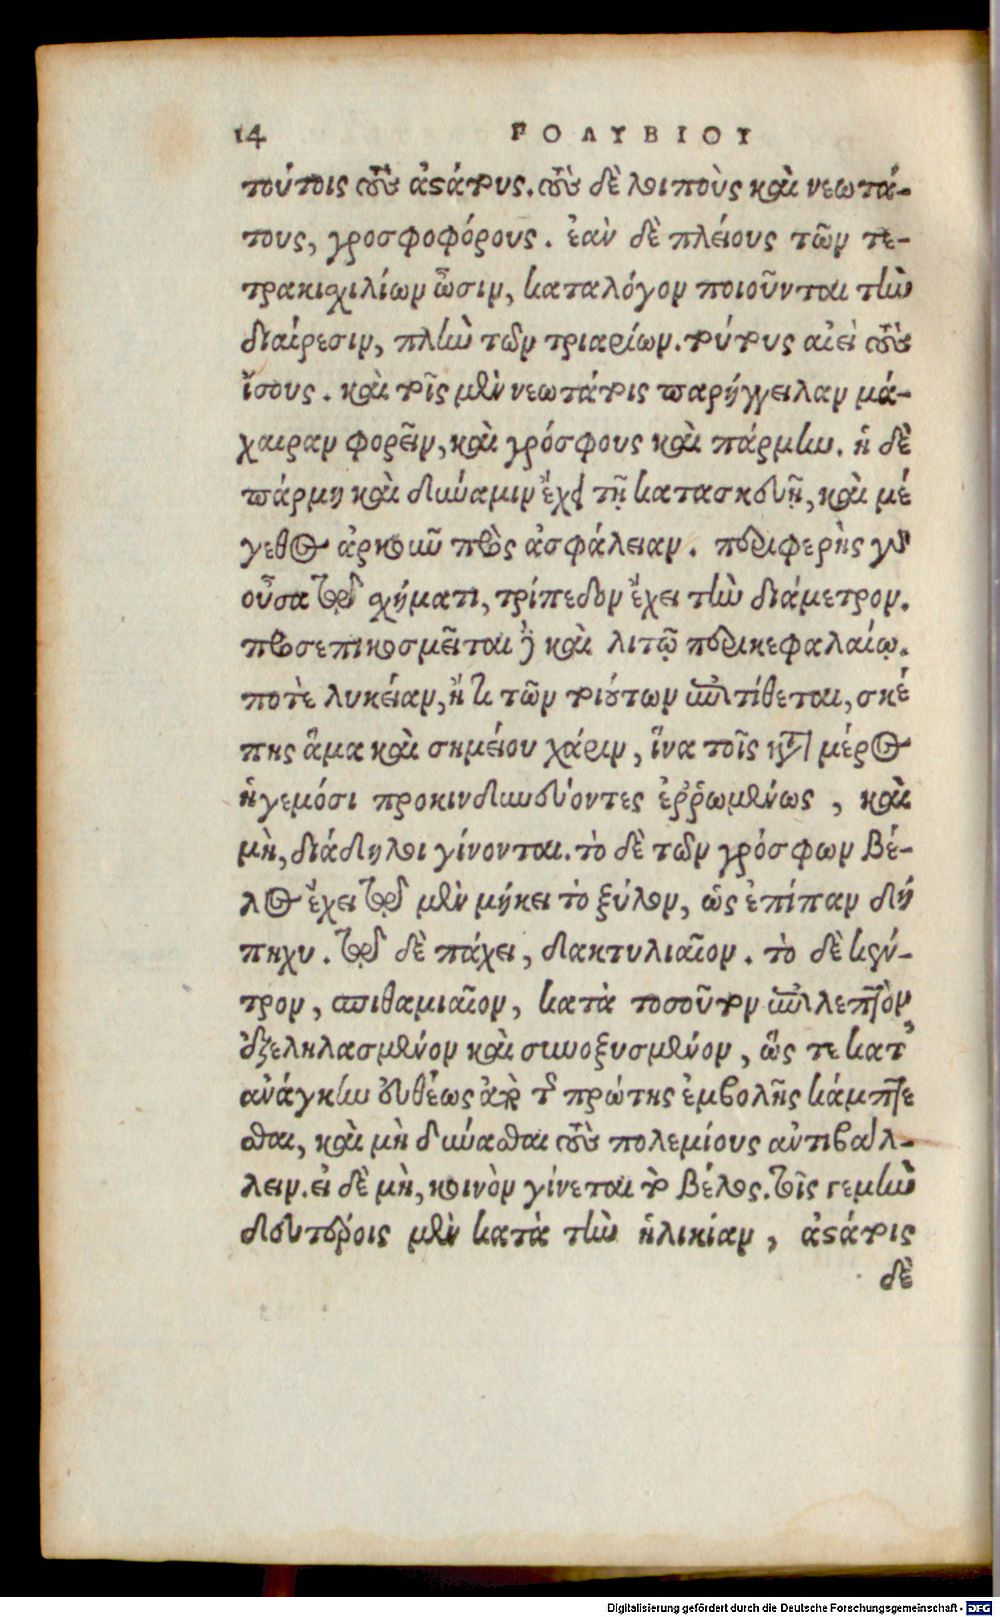 14 ΡΟΛΥΒΙΟΥ
τούτοις τοὺς ἀστάτους. τοὺς δὲ λοιποὺς καὶ νεωτά-
τους, γροσφοφόρους. ἐὰν δὲ πλείους τῶν τε-
τρακιχιλίων ὦσιν, καταλόγον ποιοῦνται τὴν
διαίρεσιν, πλὴν τῶν τριαρίων. τούτους αἰεὶ τοὺς
ἴσους. καὶ τοῖς μὲν νεωτάτοις παρήγγειλαν μά-
χαιραν φορεῖν, καὶ γρόσφους καὶ πάρμην. ἡ δὲ
πάρμη καὶ δύναμιν ἔχει τῇ κατασκευῇ, καὶ μέ
γεθος ἀρκοῦν πρὸς ἀσφάλειαν. περιφερὴς γὰρ
οὖσα τῷ σχήματι, τρίπεδον ἔχει τὴν διάμετρον.
προσεπικοσμεῖται δὲ καὶ λιτῷ περικεφαλαίῳ.
ποτὲ λυκείαν, ἤ τι τῶν τοιούτων ἐπιτίθεται, σκέ
πης ἅμα καὶ σημείου χάριν, ἵνα τοῖς κατὰ μέρος
ἡγεμόσι προκινδυνεύοντες ἐῤῥωμένως, καὶ
μὴ, διάδηλοι γίνονται. τὸ δὲ τῶν γρόσφων βέ-
λος ἔχει τῷ μὲν μήκει τὸ ξύλον, ὡς ἐπίπαν δή
πηχυ. τῷ δὲ πάχει, δακτυλιαῖον. τὸ δὲ κέν-
τρον, σπιθαμιαῖον, κατὰ τοσοῦτον ἐπὶ λεπτὸν
ἐξεληλασμένον καὶ συνοξυσμένον, ὥς τε κατ'
ἀνάγκην εὐθέως ἀπὸ τῆς πρώτης ἐμβολῆς κάμπτε
σθαι, καὶ μὴ δύνασθαι τοὺς πολεμίους ἀντιβαλ-
λειν. εἰ δὲ μὴ, κοινὸν γίνεται τὸ βέλος. τοῖς γεμὴν
δευτέροις μὲν κατὰ τὴν ἡλικίαν, ἀστάτοις
δὲ
Digitalisierung gefördert durch die Deutsche Forschungsgemeinschaft - DFG